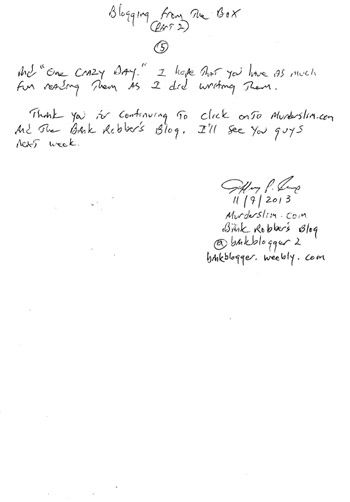 Blogging from The Box
(PART 2)
5
And "One Crazy Day." I hope that you have as much
fun reading them as I did writing them.
Thank you for continuing to click onto Murderslim.com
and The Bank Robber's Blog. I'll see you guys
next week.
11/9/2013
Murderslim.com
Bank Robber's Blog
@bankblogger2
bankblogger.weebly.com